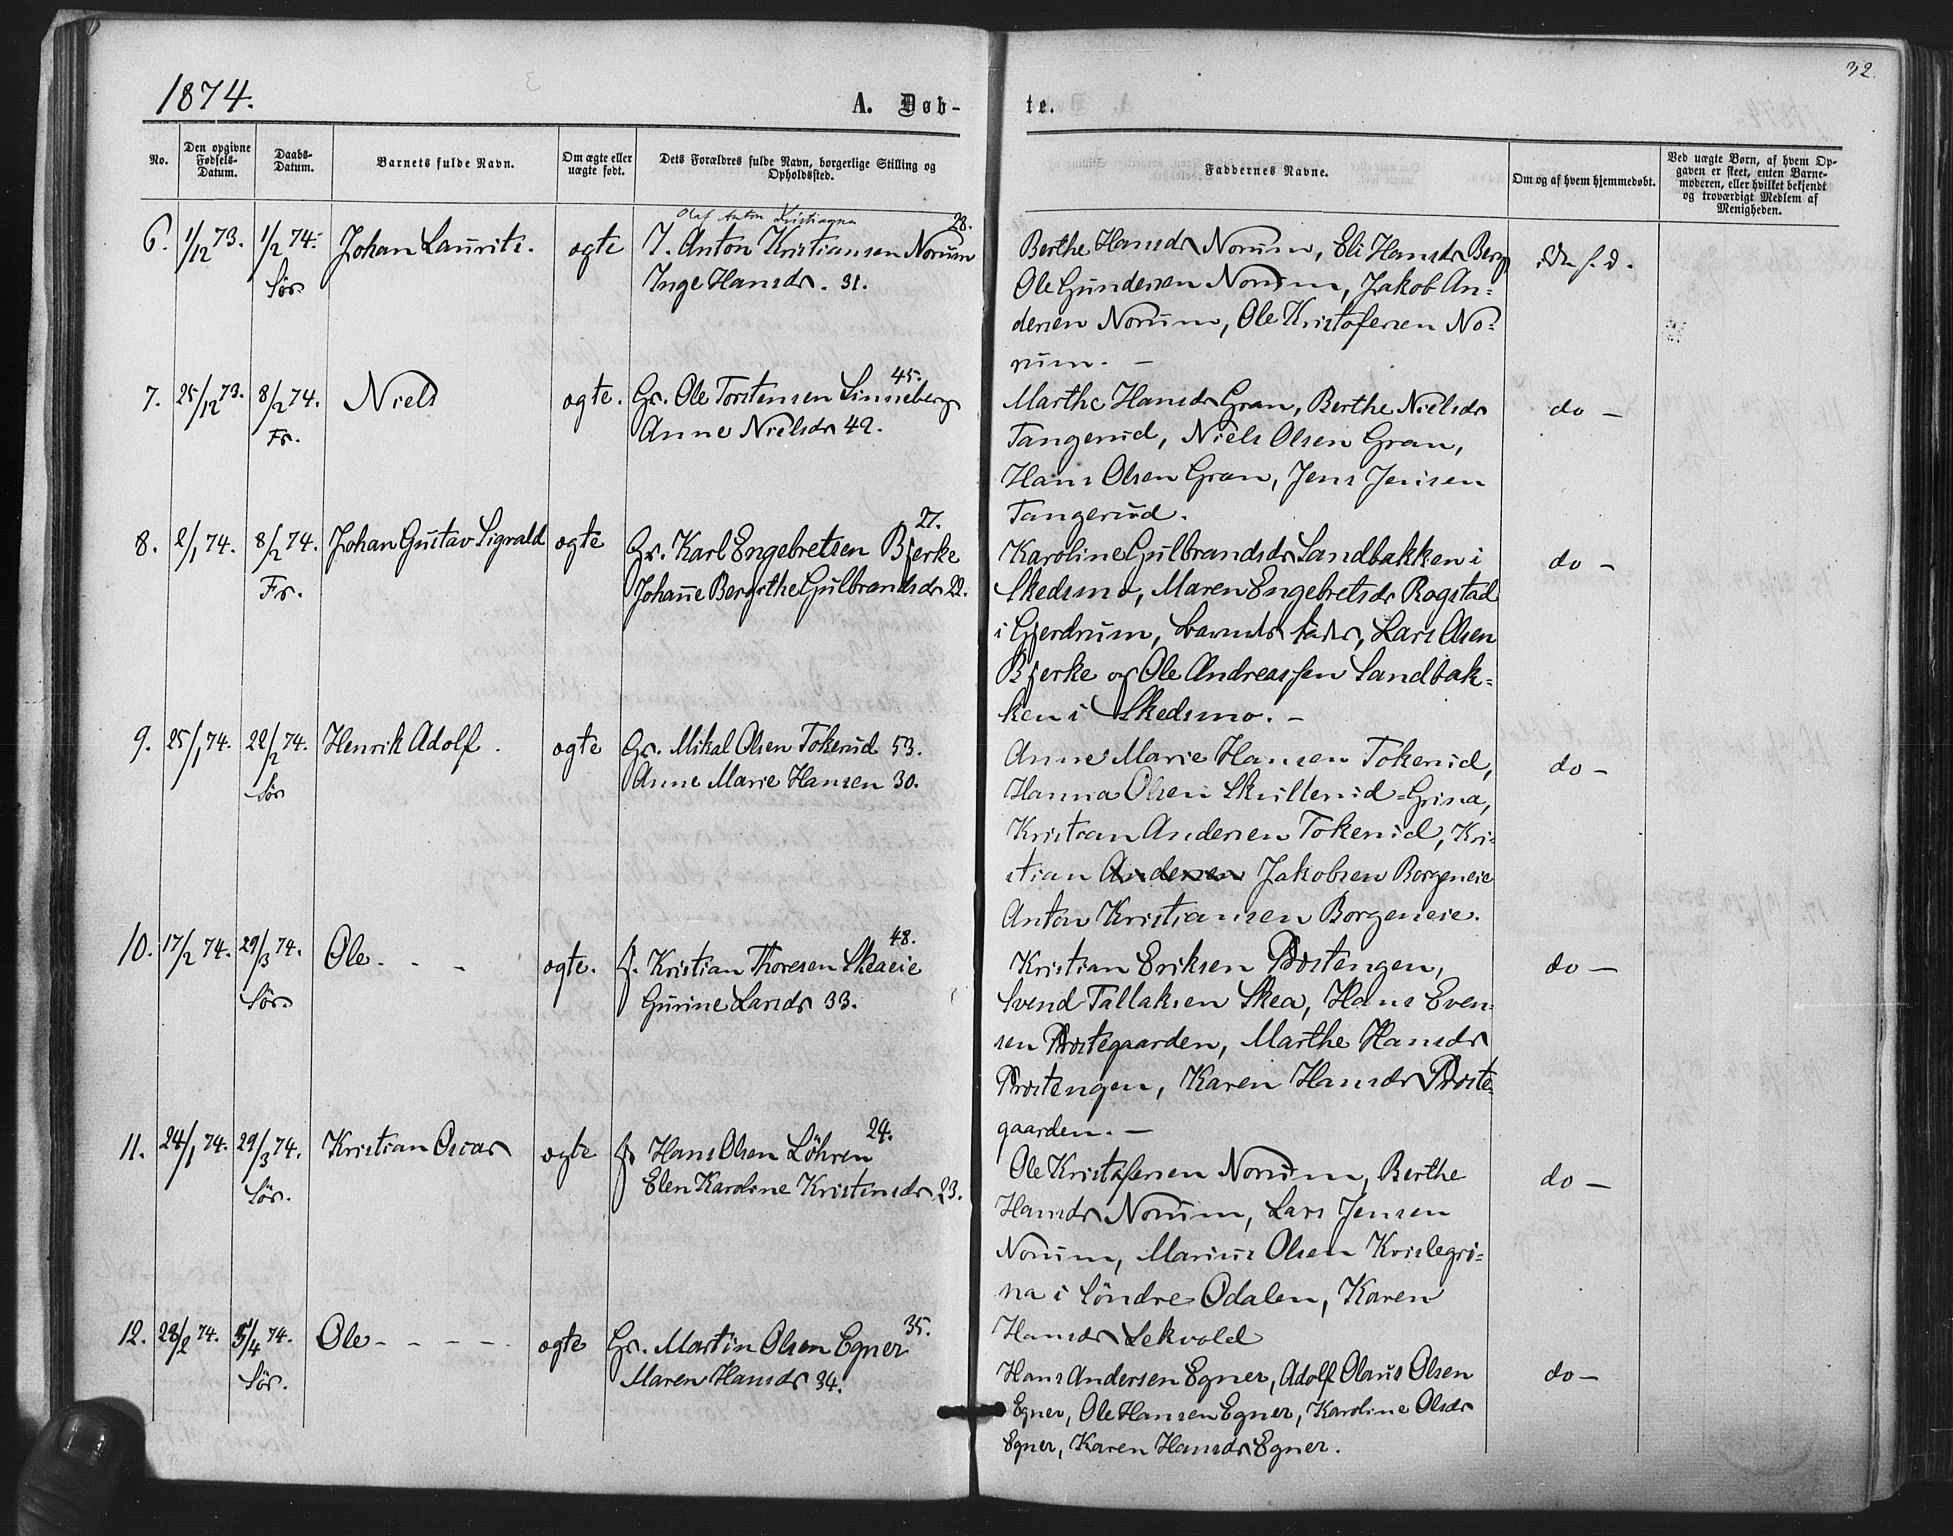 32.
1874.
A. Døb-
te.
No.
Den opgivne Fødsels-Datum.
Daabs-Datum.
Barnets fulde Navn.
Om ægte eller uægte født.
Dets Forældres fulde Navn, borgerlige Stilling og Opholdssted.
Faddernes Navne.
Om og af hvem hjemmedøbt.
Ved uægte Børn, af hvem Opgaven er skeet, enten Barnemoderen, eller hvilket bekjendt og troværdigt Medlem af Menigheden.
6. 1/12 73. 1/2 74. Sør. Johan Laurits. ægte
Olaf Anton
I. Anton Kristiansen Norum 28.
Inge Hansdr. 31.
Berthe Hansdr Norum, Eli Hansdr Berg
Ole Gundersen Norum, Jakob An-
dersen Norum, Ole Kristofersen No-
rum. —
7. 25/12 73. 8/2 74. Fr. Niels ægte.
Gr. Ole Torstensen Linneberg 45.
Anne Nielsdr 42.
Marthe Hansdr Gran, Berthe Nielsdr
Tangerud, Niels Olsen Gran,
Hans Olsen Gran, Jens Jensen
Tangerud.
do —
8. 2/1 74. 8/2 74. Fr. Johan Gustav Sigvald ægte
Gr. Karl Engebretsen Bjerke 27.
Johanne Bergithe Gulbrandsdr 22.
Karoline Gulbrandsdr Sandbakken i
Skedsmo, Maren Engebretsdr Rogstad
i Gjerdrum, Barnets Fader, Lars Olsen
Bjerke og Ole Andreassen Sandbak-
ken i Skedsmo. —
do —
9. 25/1 74. 22/2 74. Sør Henrik Adolf. ægte
Gr. Mikal Olsen Tokerud 53.
Anne Marie Hansen 30.
Anne Marie Hansen Tokerud,
Hanna Olsen Skulterud-Grina,
Kristian Andersen Tokerud, Kri-
stian Andersen Jakobsen Borgeneie
Anton Kristiansen Borgeneie.
do —
10. 17/2 74. 29/3 74. Sør. Ole - - - ægte.
f. Kristian Thoresen Skeaeie 48.
Gurine Larsdr 33.
Kristian Eriksen Præstengen,
Svend Tallaksen Skea, Hans Even-
sen Præstegaarden, Marthe Hansdr
Præstengen, Karen Hansdr Præste-
gaarden. —
do —
11. 24/1 74. 29/3 74. Sør. Kristian Oscar ægte
Hans Olsen Löhren 24.
Elen Karoline Kristensdr 23.
Ole Kristofersen Norum, Berthe
Hansdr Norum, Lars Jensen
Norum, Marius Olsen Kvislegri-
na i Söndre Odalen, Karen
Hansdr Lekvold
do —
12. 28/2 74. 5/4 74. Sør. Ole - - - - ægte
Gr. Martin Olsen Egner 35.
Maren Hansdr 34.
Hans Andersen Egner, Adolf Olaus Olsen
Egner, Ole Hansen Egner, Karoline Olsdr
Egner, Karen Hansdr Egner.
do —